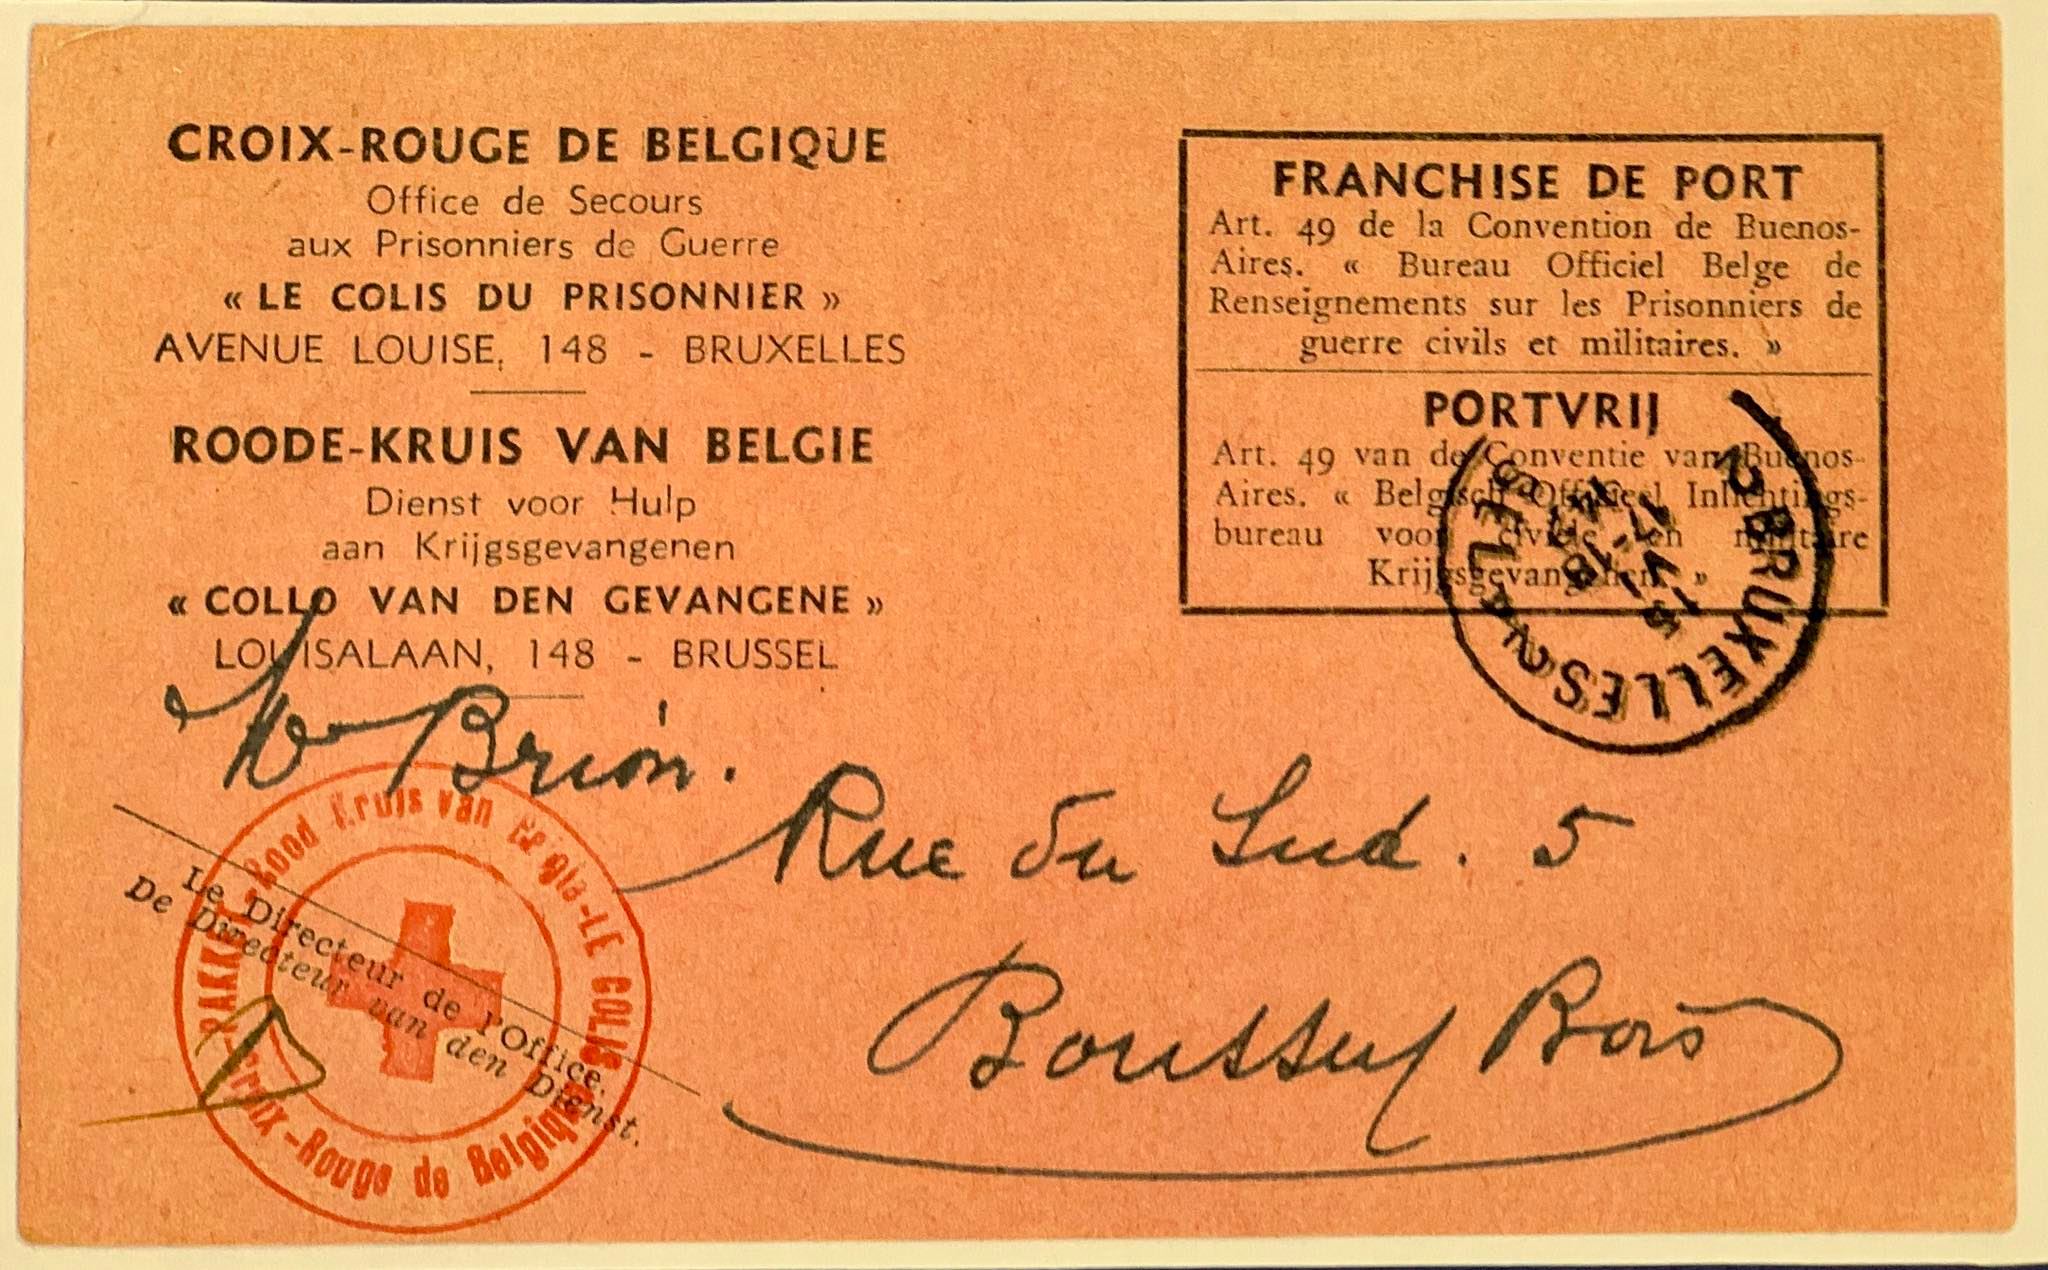 CROIX-ROUGE DE BELGIQUE
Office de Secours
aux Prisonniers de Guerre
« LE COLIS DU PRISONNIER »
AVENUE LOUISE, 148 - BRUXELLES
ROODE-KRUIS VAN BELGIE
Dienst voor Hulp
aan Krijgsgevangenen
« COLLO VAN DEN GEVANGENE »
LOUISALAAN, 148 - BRUSSEL
FRANCHISE DE PORT
Art. 49 de la Convention de Buenos-
Aires. « Bureau Officiel Belge de
Renseignements sur les Prisonniers de
guerre civils et militaires. »
PORTVRIJ
Art. 49 van de Conventie van Buenos-
Aires. « Belgisch Officieel Inlichtings-
bureau voor civiele en militaire
Krijgsgevangenen. »
BRUXELLES
BRUSSEL
Brion.
Rue du Sud. 5
Boussu Bois
Rood Kruis van België - LE COLIS
Croix-Rouge de Belgique
Le Directeur de l'Office.
De Directeur van den Dienst.